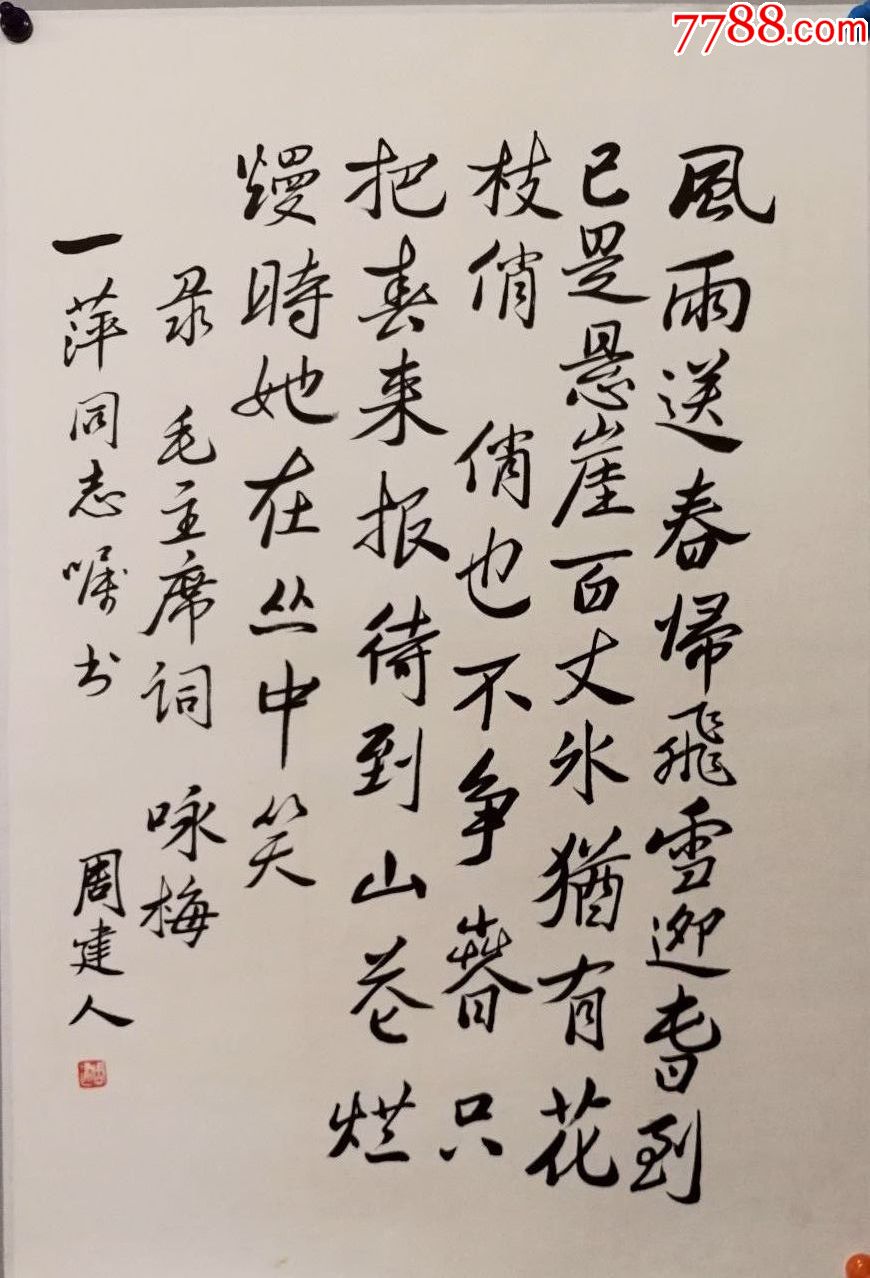 7788.com
風雨送春帰飛雪迎春到
已是悬崖百丈冰猶有花
枝俏 俏也不争春只
把春来报待到山花烂
熳時她在丛中笑
录 毛主席词 咏梅
一萍同志嘱书 周建人